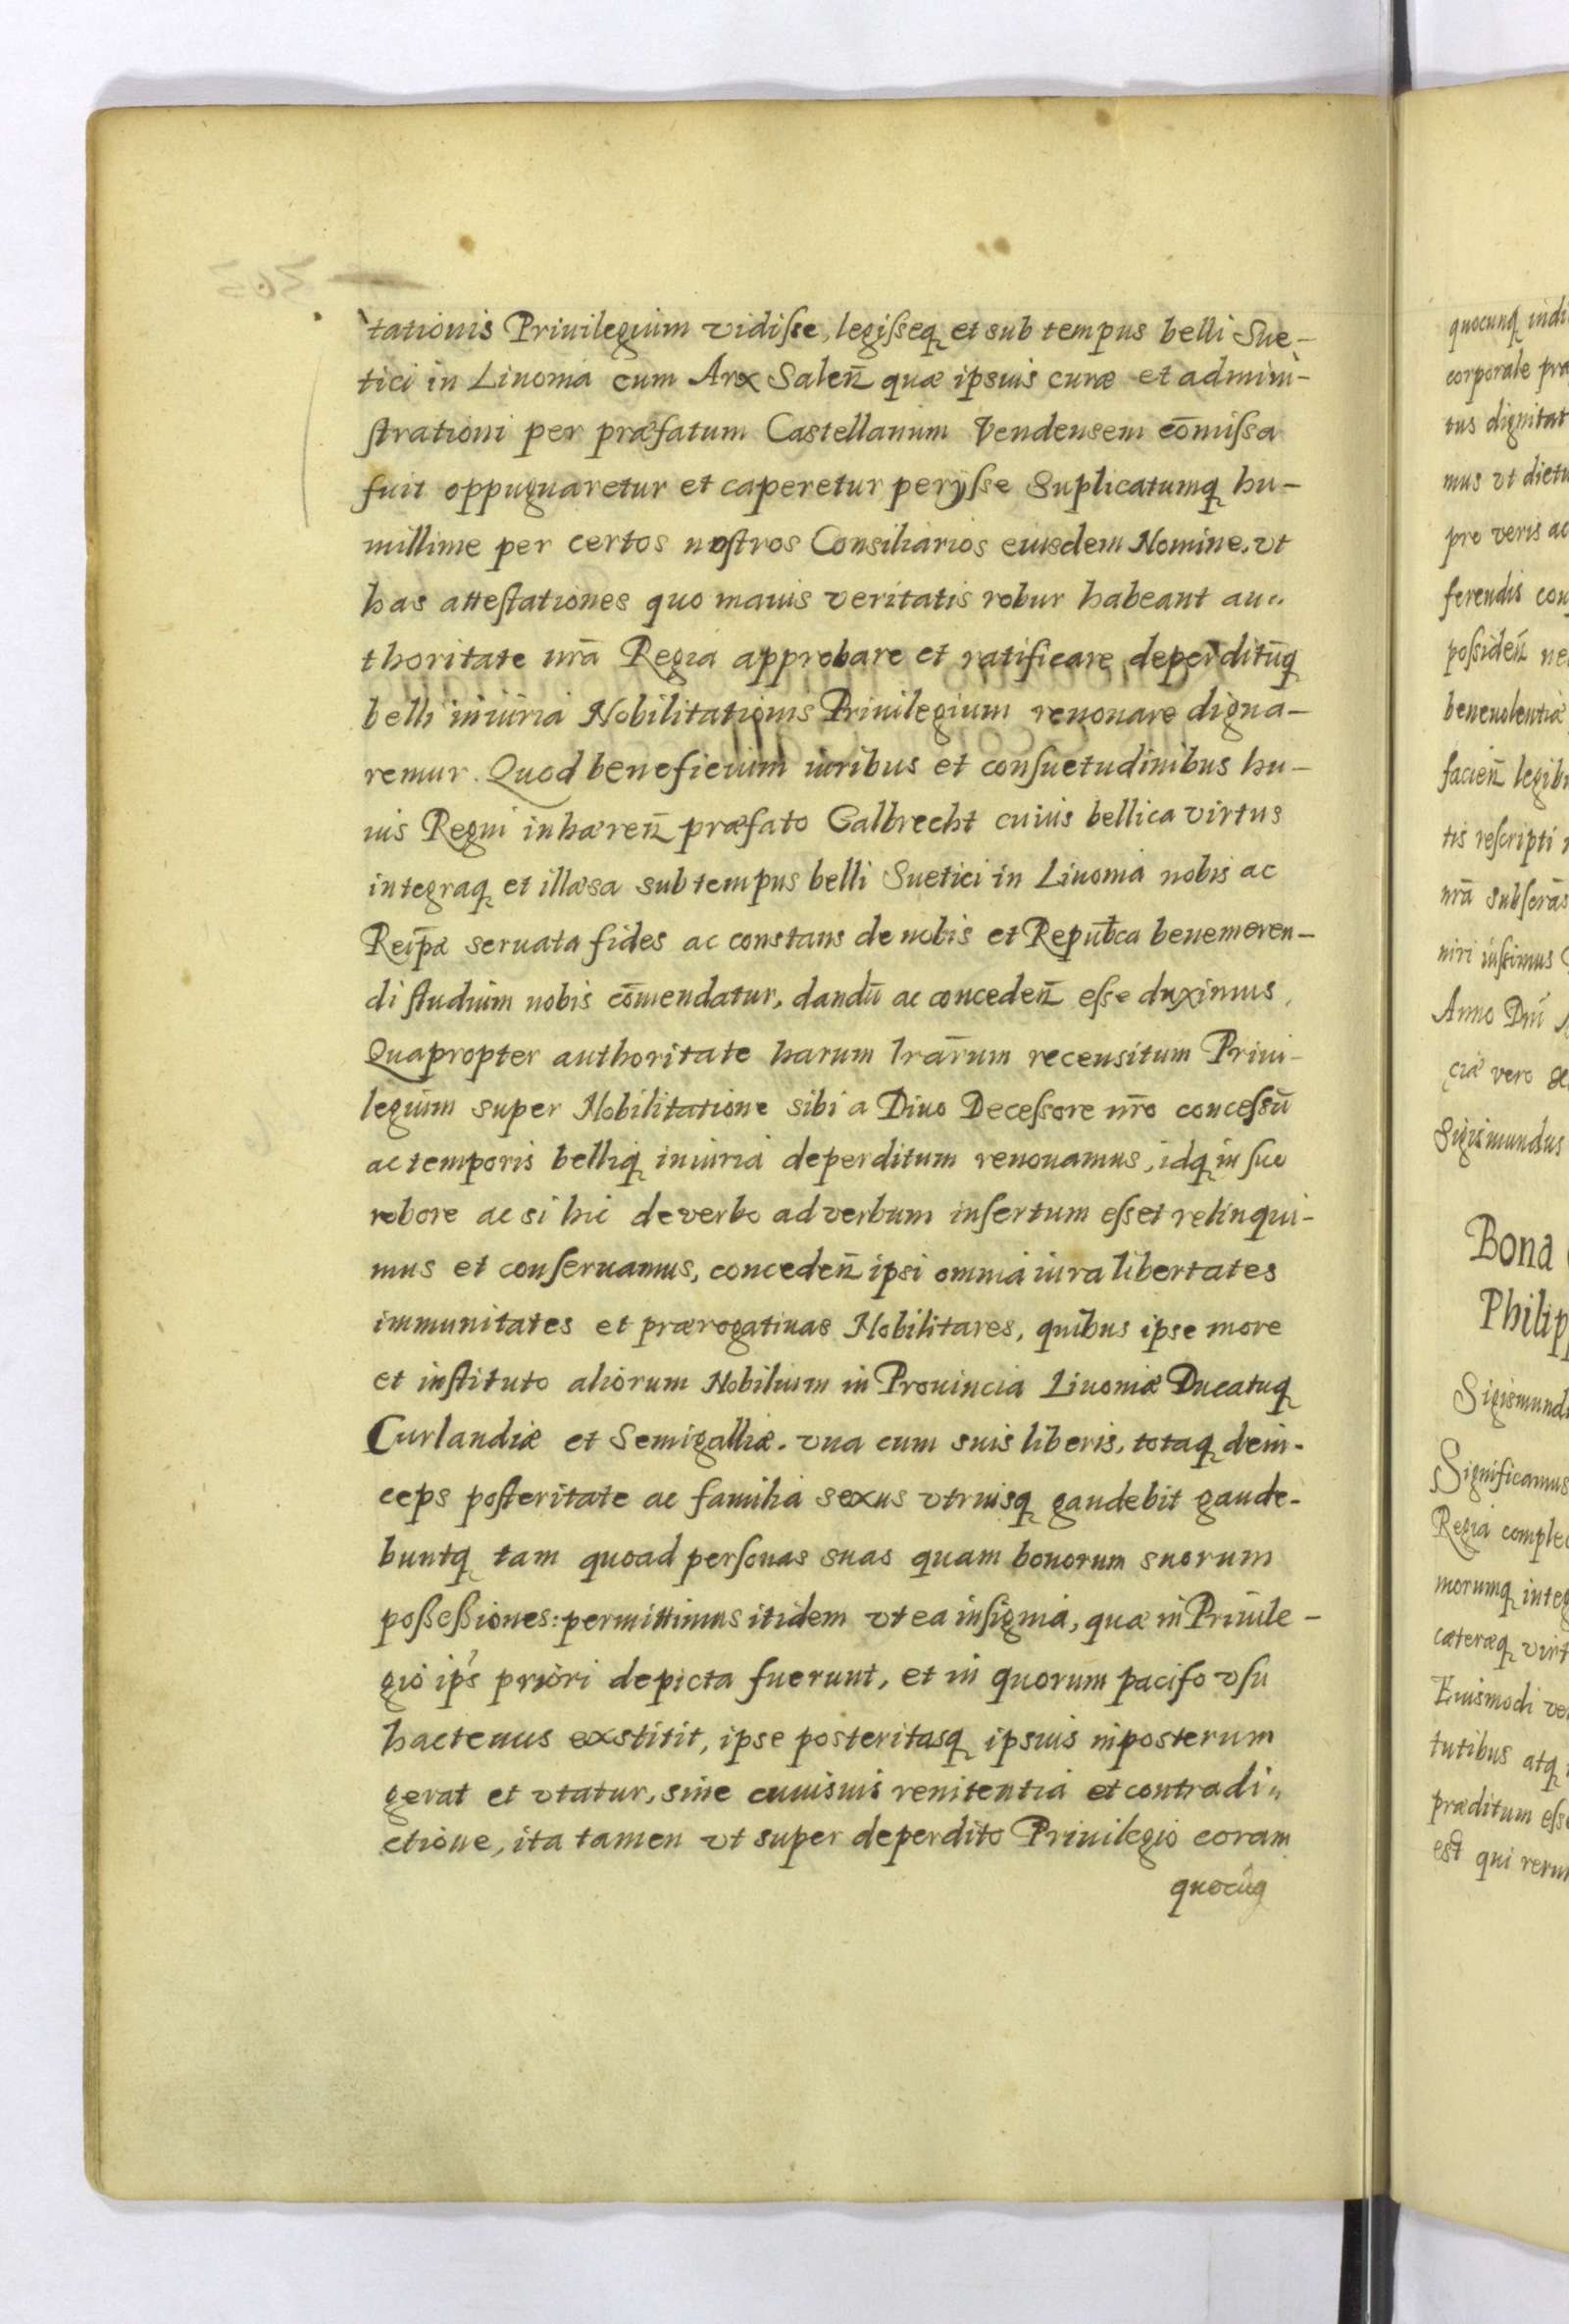 tationis Priuilegium vidiſse, legiſseq et sub tempus belli Sue-
tici in Liuonia cum Arx Saleñ quæ ipsius curæ et admini-
ſtrationi per præfatum Castellanum Vendensem com̄iſsa
fuit oppugnaretur et caperetur perijſse Suplicatumq hu-
millime per certos noſtros Consiliarios eiusdem Nomine, vt
has atteſtationes quo maius veritatis robur habeant au-
thoritate nrā Regia approbare et ratificare deperditūq
belli iniuria Nobilitationis Priuilegium renouare digna-
remur. Quod beneficium iuribus et conſuetudinibus hu-
ius Regni inhæreñ præfato Galbrecht cuius bellica virtus
integraq et illæsa sub tempus belli Suetici in Liuonia nobis ac
Reip̄æ seruata fides ac constans de nobis et Repub̄ca benemeren-
di ſtudium nobis com̄endatur, dandū ac concedeñ eſse duximus,
Quapropter authoritate harum lrārum recensitum Priui-
legium super Nobilitatione sibi a Diuo Deceſsore nr̄o conceſsū
ac temporis belliq iniuria deperditum renouamus, idq in ſuo
robore ac si hic de verbo ad verbum inſertum eſset relinqui-
mus et conſeruamus, concedeñ ipsi omnia iura libertates
immunitates et prærogatiuas Nobilitares, quibus ipse more
et inſtituto aliorum Nobilium in Prouincia Liuoniæ Ducatuq
Curlandiæ et Semigalliæ. vna cum suis liberis, totaq dein-
ceps poſteritate ac familia sexus vtriusq gaudebit gaude-
buntq tam quoad perſonas suas quam bonorum suorum
poßeßiones: permittimus itidem vt ea inſignia, quæ in Priuile-
gio ip's priori depicta fuerunt, et in quorum pacifo vſu
hactenus exstitit, ipse posteritasq ipsius inposterum
gerat et vtatur, sine cuiusuis renitentia et contradi-
ctione, ita tamen vt super deperdito Priuilegio coram
quocūq
quocunq indi
corporale præ
tus dignitat
mus vt dictu
pro veris ac
ferendis con
poſsideñ ne
beneuolentiæ
facieñ legib
tis reſcripti
nrā subſcrās
niri iuſsimus
Anno Dn̄i
ciæ vero
Sigismundus
Bona
Philipp
Sigismund
Significamus
Regia comple
morumq integ
cæteraq virt
Eiusmodi ve
tutibus atq
præditum eſse
est qui rerum